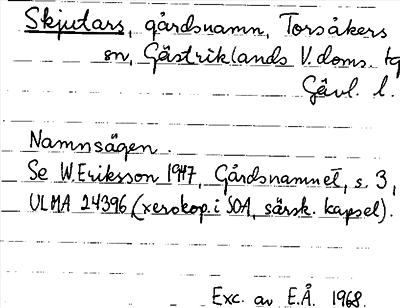 Skjutars, gårdsnamn, Torsåkers
sn, Gästriklands V. doms. tg
Gävl. l.
Namnsägen.
Se W. Eriksson 1947, Gårdsnamnet, s. 3,
ULMA 24396 (xerokop. i SOA, särsk. kapsel).
Exc. av E.Å. 1968.